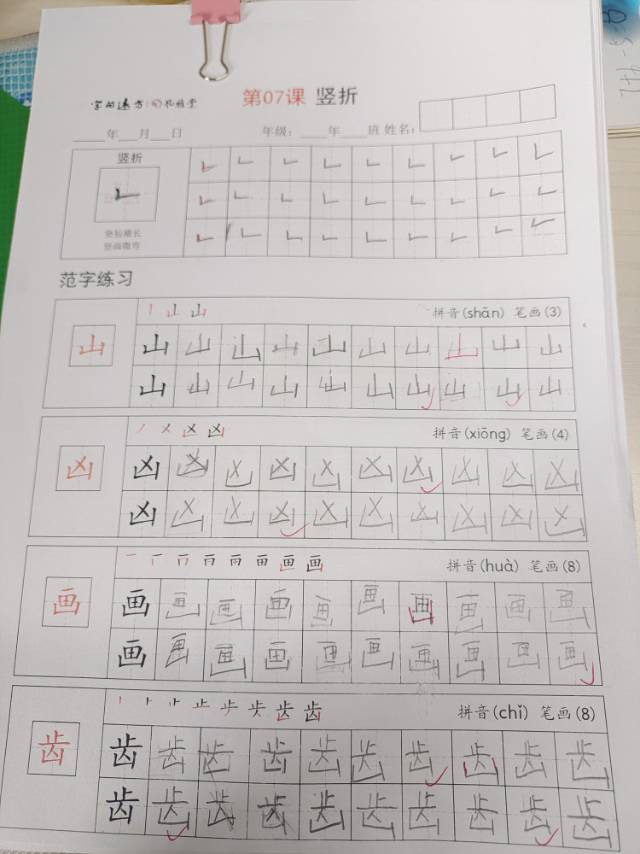 第07课 竖折
____年___月___日 年级：____年____班 姓名：
竖折
竖短横长
范字练习
拼音(shān) 笔画(3)
山 山 山 山 山 山 山 山 山 山 山
山 山 山 山 山 山 山 山 山 山
拼音(xiōng) 笔画(4)
凶 凶 凶 凶 凶 凶 凶 凶 凶 凶 凶
凶 凶 凶 凶 凶 凶 凶 凶 凶 凶
拼音(huà) 笔画(8)
画 画 画 画 画 画 画 画 画 画 画
画 画 画 画 画 画 画 画 画 画
拼音(chǐ) 笔画(8)
齿 齿 齿 齿 齿 齿 齿 齿 齿 齿 齿
齿 齿 齿 齿 齿 齿 齿 齿 齿 齿